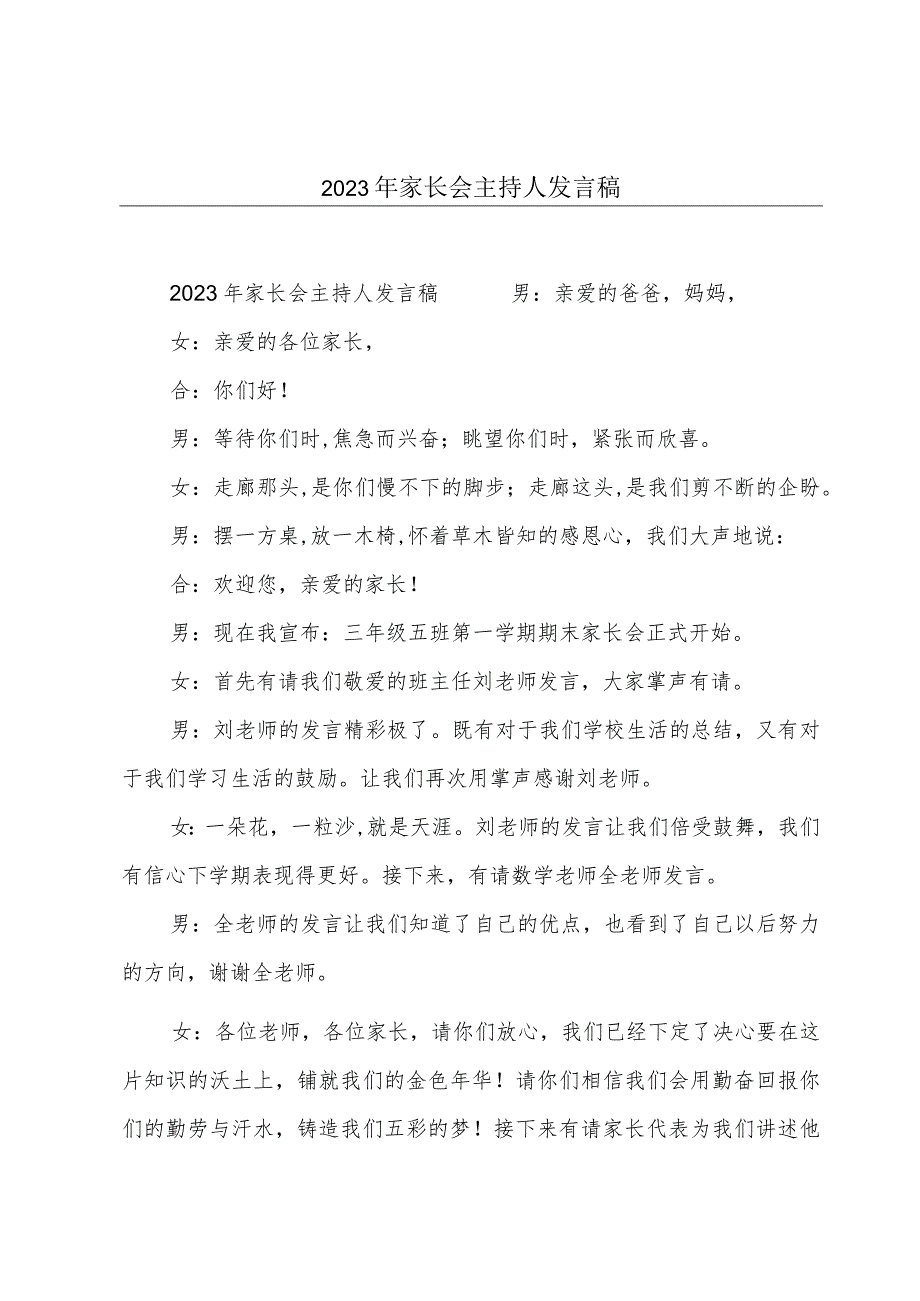 2023年家长会主持人发言稿
2023 年家长会主持人发言稿 男：亲爱的爸爸，妈妈，
女：亲爱的各位家长，
合：你们好！
男：等待你们时,焦急而兴奋；眺望你们时，紧张而欣喜。
女：走廊那头,是你们慢不下的脚步；走廊这头,是我们剪不断的企盼。
男：摆一方桌,放一木椅,怀着草木皆知的感恩心，我们大声地说：
合：欢迎您，亲爱的家长！
男：现在我宣布：三年级五班第一学期期末家长会正式开始。
女：首先有请我们敬爱的班主任刘老师发言，大家掌声有请。
男：刘老师的发言精彩极了。既有对于我们学校生活的总结，又有对
于我们学习生活的鼓励。让我们再次用掌声感谢刘老师。
女：一朵花，一粒沙,就是天涯。刘老师的发言让我们倍受鼓舞，我们
有信心下学期表现得更好。接下来，有请数学老师全老师发言。
男：全老师的发言让我们知道了自己的优点，也看到了自己以后努力
的方向，谢谢全老师。
女：各位老师，各位家长，请你们放心，我们已经下定了决心要在这
片知识的沃土上，铺就我们的金色年华！请你们相信我们会用勤奋回报你
们的勤劳与汗水，铸造我们五彩的梦！接下来有请家长代表为我们讲述他